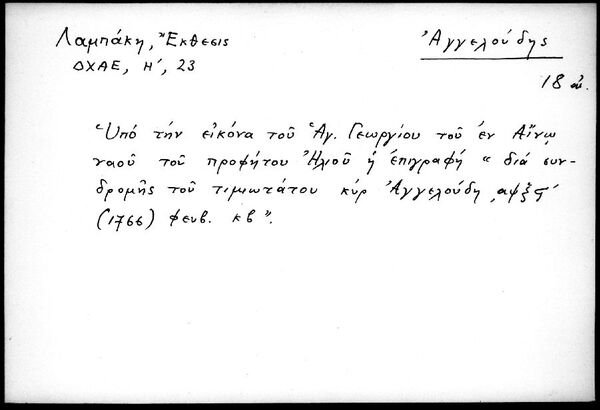 Λαμπάκη, Ἔκθεσις
Ἀγγελούδης
ΔΧΑΕ, Η´, 23
18 αἰ.
Ὑπό τήν εἰκόνα τοῦ Ἁγ. Γεωργίου τοῦ ἐν Αἴνῳ
ναοῦ τοῦ προφήτου Ἠλιοῦ ἡ ἐπιγραφή « διά συν-
δρομῆς τοῦ τιμιωτάτου κύρ Ἀγγελούδη ͵αψξϛ´
(1766) φευβ. κβ ».